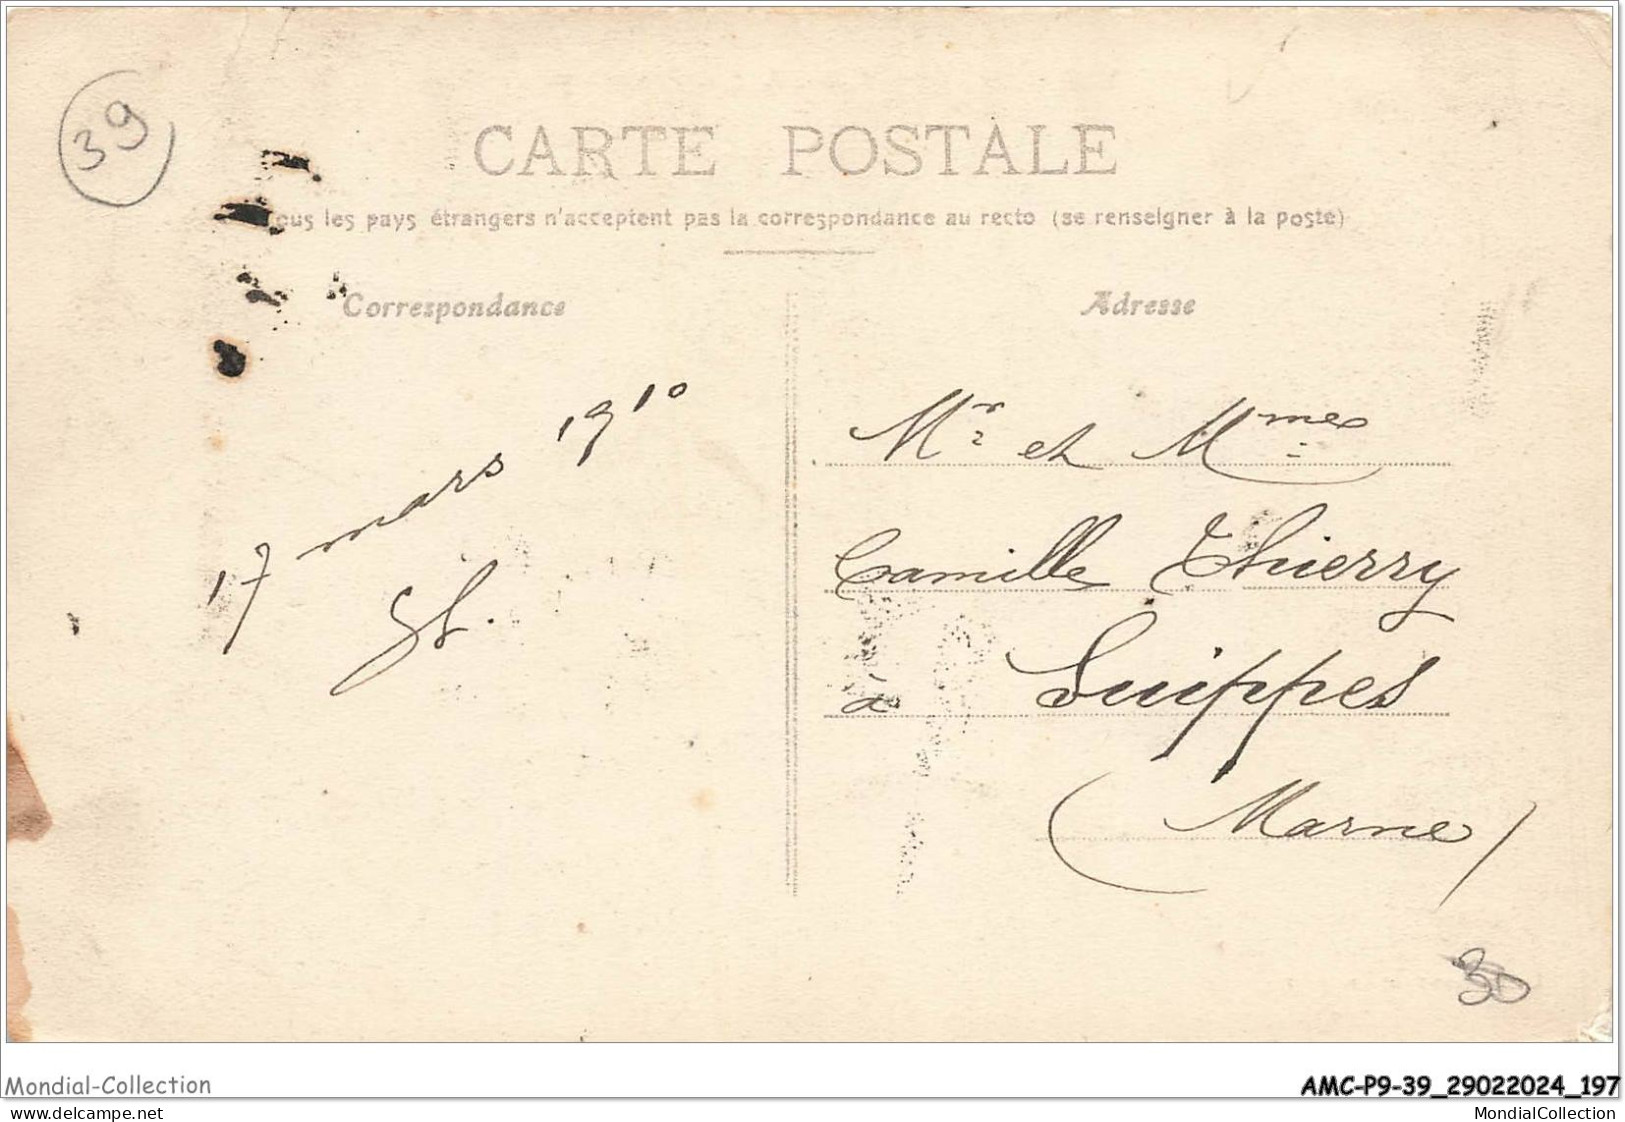 39
CARTE POSTALE
ous les pays étrangers n'acceptent pas la correspondance au recto (se renseigner à la poste)
Correspondance
17 mars 1910
Adresse
Mr et Mmes
Camille Thierry
à Suippes
(Marne)
30
Mondial-Collection
AMC-P9-39_29022024_197
www.delcampe.net
MondialCollection